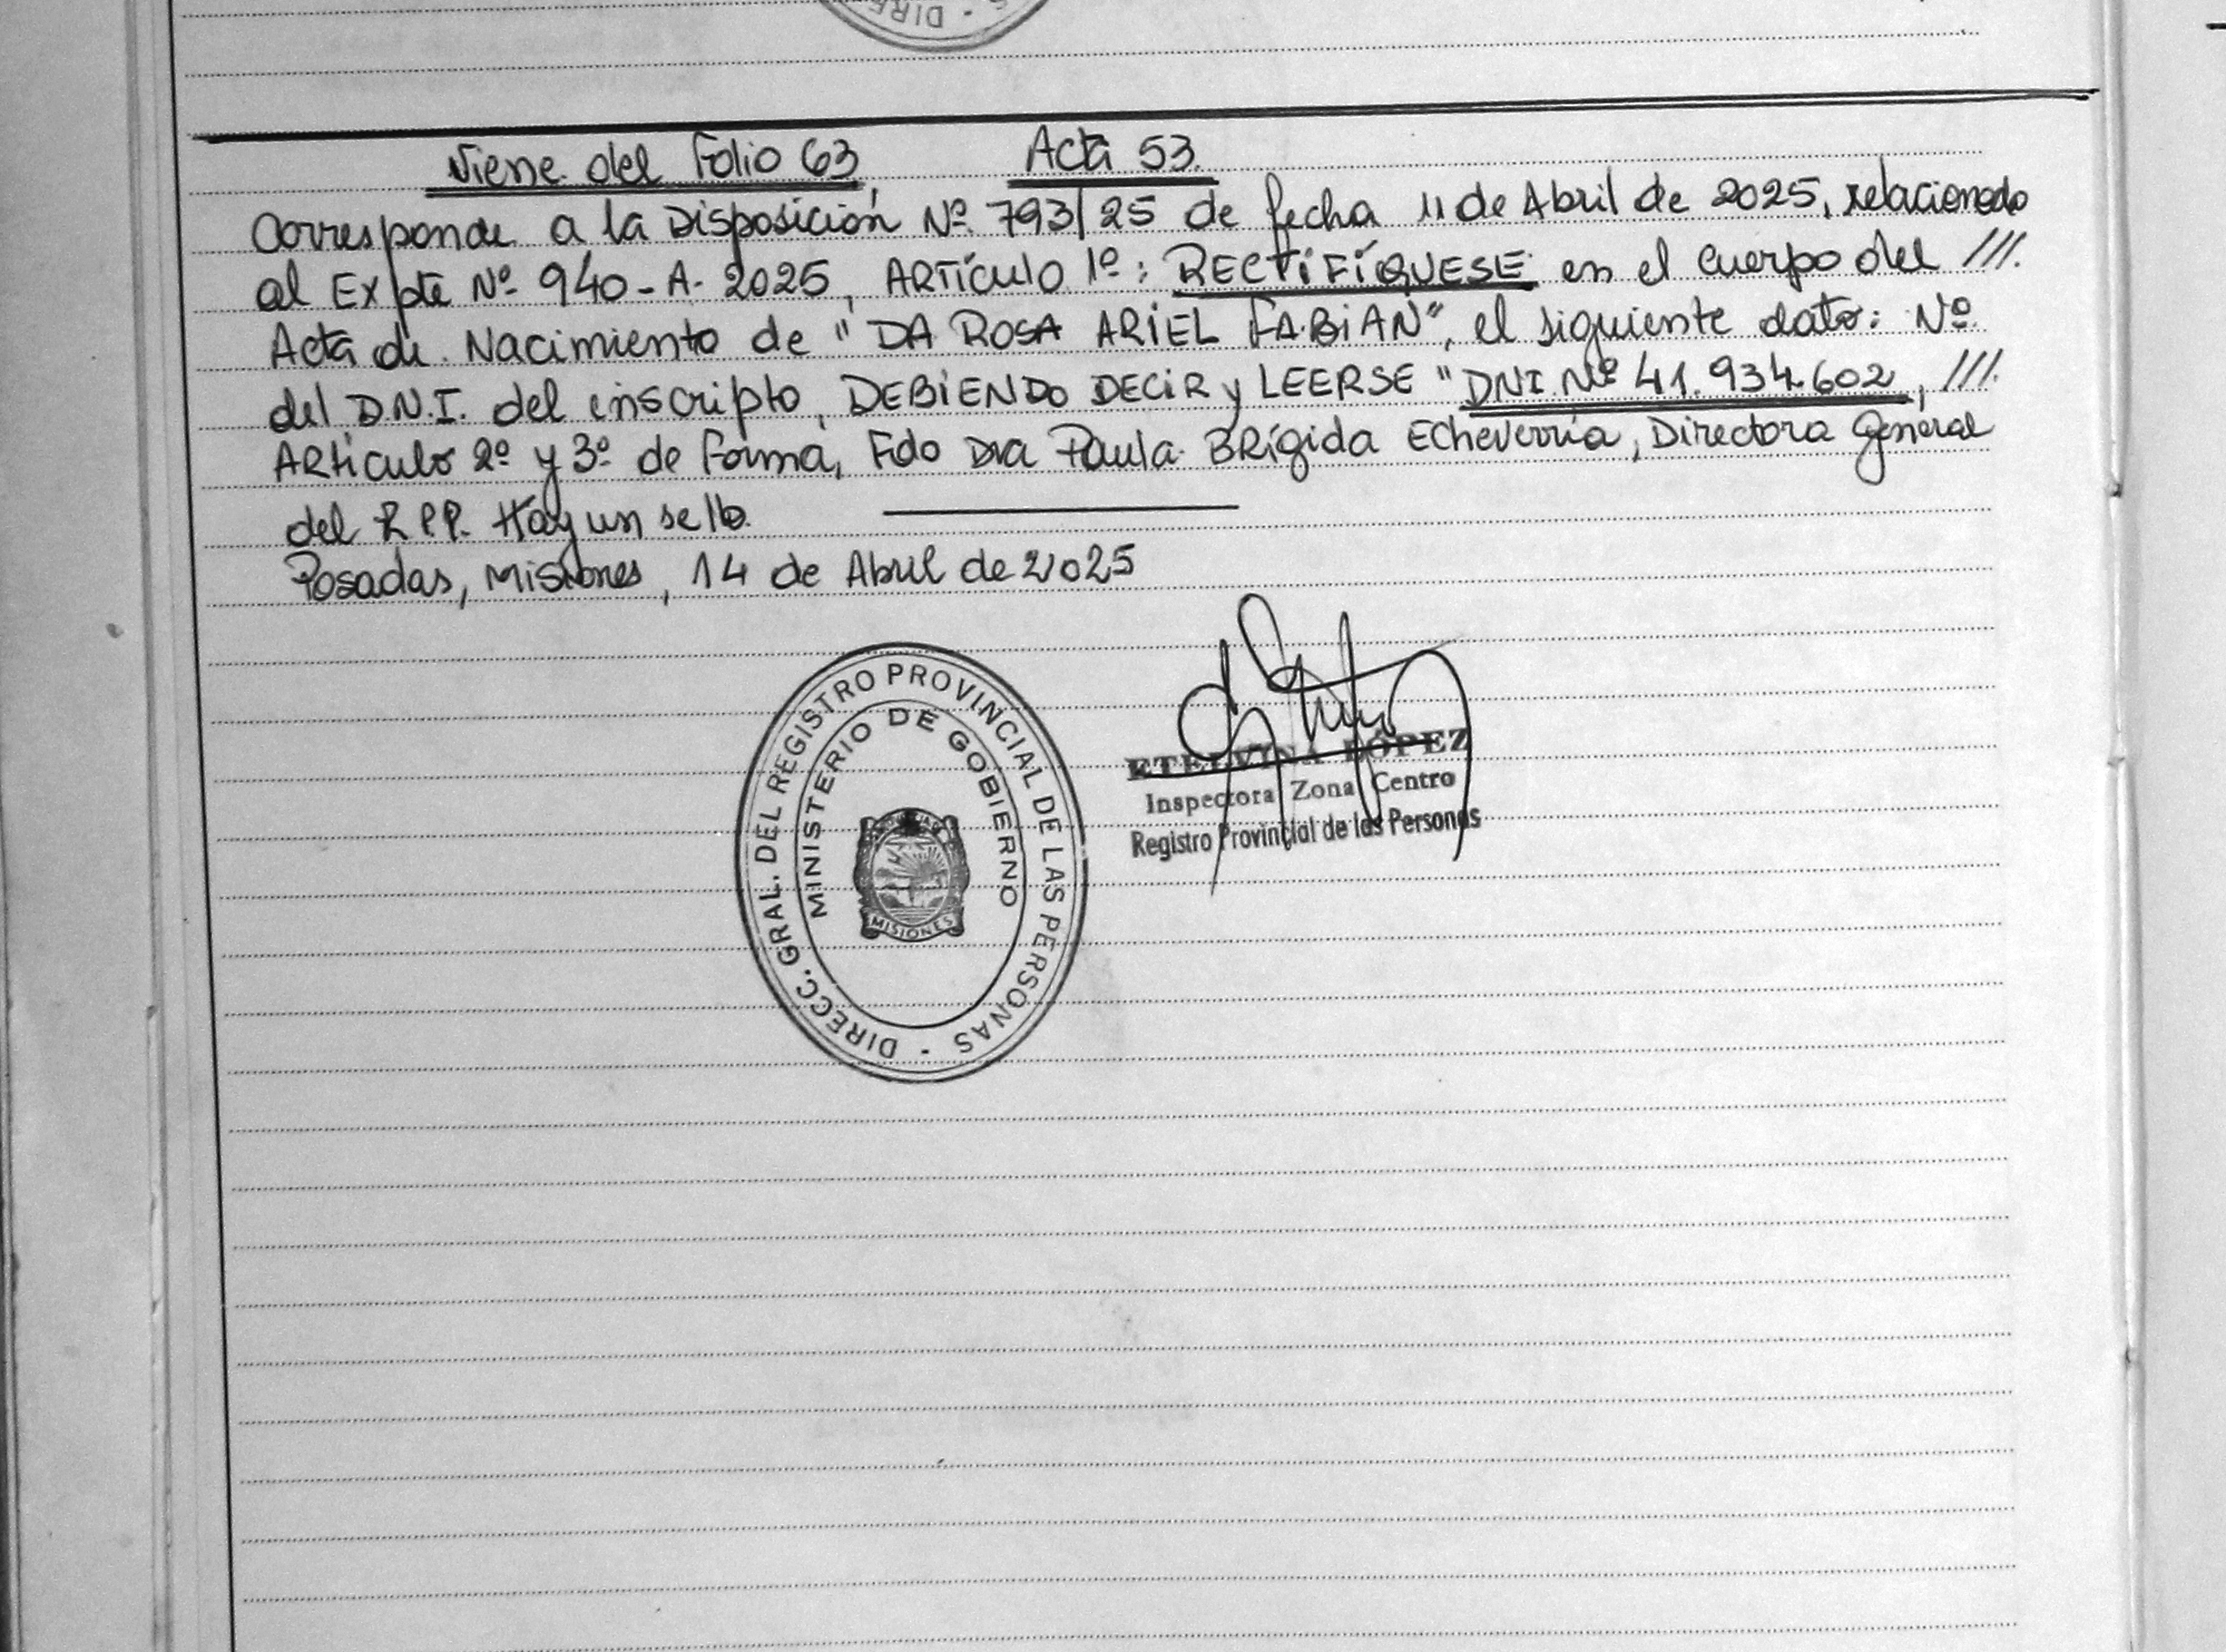 DIRE
S
Viene del Folio 63, Acta 53.
Corresponde a la Disposición Nº 793/25 de fecha 11 de Abril de 2025, relacionado
al Expte Nº 940-A-2025, ARTÍCULO 1º: RECTIFÍQUESE en el cuerpo del ///.
Acta de Nacimiento de "DA ROSA ARIEL FABIAN", el siguiente dato: Nº
del D.N.I. del inscripto, DEBIENDO DECIR y LEERSE "DNI.Nº 41.934.602, ///.
ARticulo 2º y 3º de Forma, Fdo Dra Paula BRígida Echeverría, Directora General
del R.P.P. Hay un sello.
Posadas, Misiones, 14 de Abril de 2025
DIRECC. GRAL. DEL REGISTRO PROVINCIAL DE LAS PERSONAS -
MINISTERIO DE GOBIERNO
MISIONES
ETELVINA LÓPEZ
Inspectora Zona Centro
Registro Provincial de las Personas